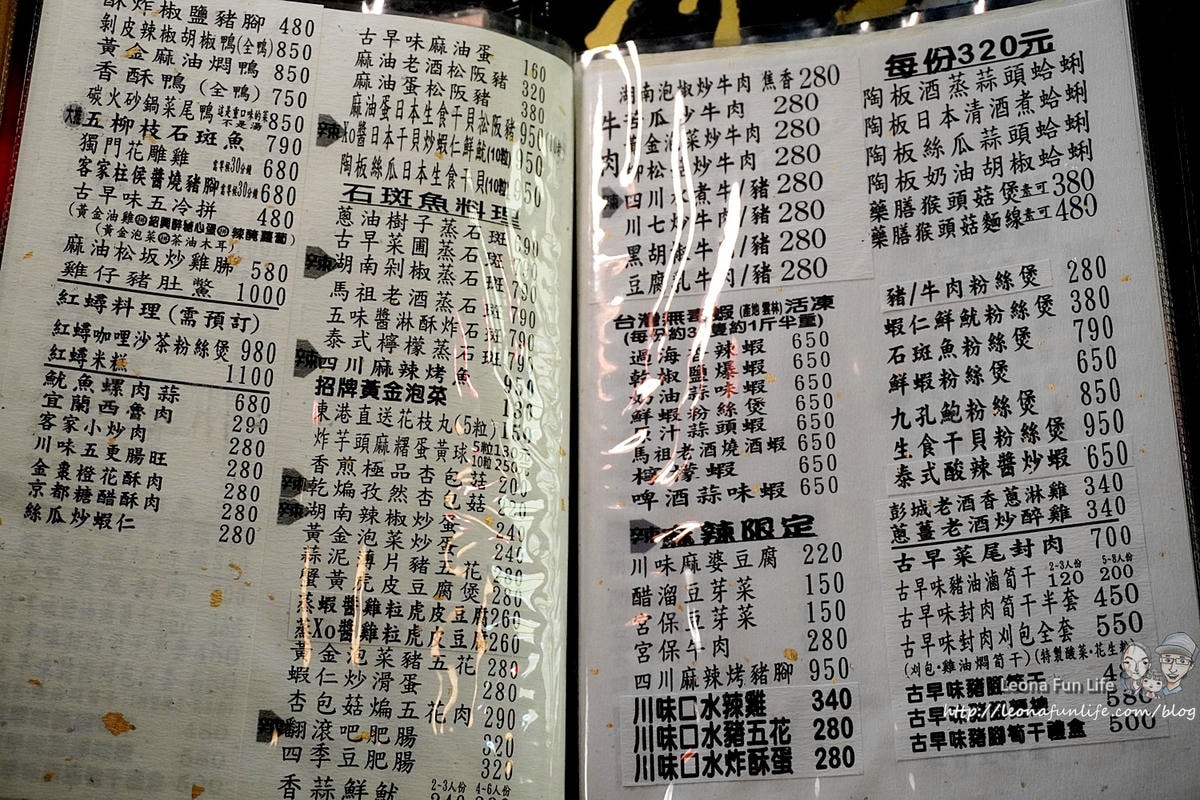 酥炸椒鹽豬腳 480
剝皮辣椒胡椒鴨(全鴨) 850
黃金麻油燜鴨 850
香酥鴨(全鴨) 750
碳火砂鍋菜尾鴨 850
五柳枝石斑魚 790
獨門花雕雞 680
客家柱侯醬燒豬腳 680
古早味五冷拼 480
麻油松坂炒雞腓 580
雞仔豬肚鱉 1000
紅蟳料理(需預訂)
紅蟳咖哩沙茶粉絲煲 980
紅蟳米糕 1100
魷魚螺肉蒜 680
宜蘭西魯肉 290
客家小炒肉 280
川味五更腸旺 280
金棗橙花酥肉 280
京都糖醋酥肉 280
絲瓜炒蝦仁 280
古早味麻油蛋 160
麻油老酒松阪豬 320
麻油蛋松阪豬 380
麻油蛋日本生食干貝松阪豬 950
Xo醬日本干貝炒蝦仁鮮魷(10粒) 950
陶板絲瓜日本生食干貝(10粒) 950
石斑魚料理
蔥油樹子蒸石斑 790
古早菜圃蒸石斑 790
辣 湖南剁椒蒸石斑 790
馬祖老酒蒸石斑 790
五味醬淋酥炸石斑 790
泰式檸檬蒸石斑 790
辣 四川麻辣烤魚 950
招牌黃金泡菜 130
東港直送花枝丸(5粒) 150
炸芋頭麻糬蛋黃球 5粒130 10粒250
香煎極品杏包菇 200
乾煸孜然杏包菇
湖南辣椒炒蛋 240
黃金泡菜炒蛋 240
蒜泥薄片豬五花 280
蟹黃虎皮豆腐煲 280
蒸蝦醬雞粒虎皮豆腐 260
蒸Xo醬雞粒虎皮豆腐 260
黃金泡菜豬五花 280
蝦仁炒滑蛋 280
杏包菇煸五花肉 290
翻滾吧肥腸 320
四季豆肥腸 320
香蒜鮮魷 2-3人份 4-6人份
湖南泡椒炒牛肉 焦香 280
苦瓜炒牛肉 280
黃金泡菜炒牛肉 280
炒牛肉 280
四川水煮牛/豬 280
川七炒牛肉 280
黑胡椒牛肉/豬 280
豆腐乳牛肉/豬 280
台灣無毒蝦(產地雲林)活凍
過海香辣蝦 650
乾椒鹽爆蝦 650
奶油蒜味蝦 650
鮮蝦粉絲煲 650
原汁蒜頭蝦 650
馬祖老酒燒酒蝦 650
檸檬蝦 650
啤酒蒜味蝦 650
麻辣限定
川味麻婆豆腐 220
醋溜豆芽菜 150
宮保豆芽菜 150
宮保牛肉 280
四川麻辣烤豬腳 950
川味口水辣雞 340
川味口水豬五花 280
川味口水炸酥蛋 280
每份320元
陶板酒蒸蒜頭蛤蜊
陶板日本清酒煮蛤蜊
陶板絲瓜蒜頭蛤蜊
陶板奶油胡椒蛤蜊
藥膳猴頭菇煲素可 380
藥膳猴頭菇麵線素可 480
豬/牛肉粉絲煲 280
蝦仁鮮魷粉絲煲 380
石斑魚粉絲煲 790
鮮蝦粉絲煲 650
九孔鮑粉絲煲 850
生食干貝粉絲煲 950
泰式酸辣醬炒蝦 650
彭城老酒香蔥淋雞 340
蔥薑老酒炒醉雞 340
古早菜尾封肉 700
古早味豬油滷筍干 2-3人份 120 5-8人份 200
古早味封肉筍干半套 450
古早味封肉刈包全套 550
(刈包·雞油燜筍干)(特製酸菜·花生粉)
古早味豬腳筍干
古早味
古早味豬腳筍干禮盒 500
Leona Fun Life
http://leonafunlife.com/blog